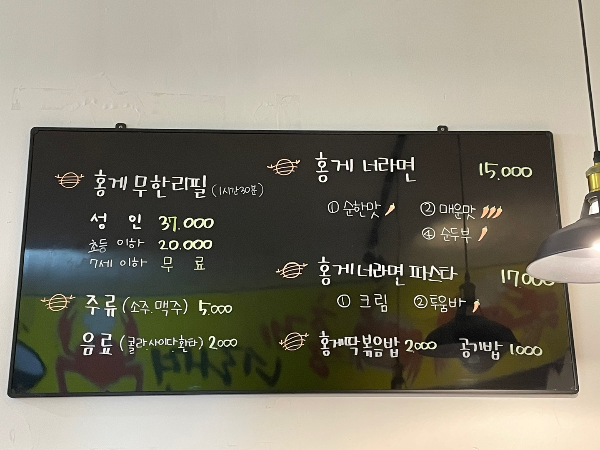 홍게 무한리필 (1시간30분)
성 인 37.000
초등 이하 20.000
7세 이하 무 료
주류 (소주.맥주) 5.000
음료 (콜라.사이다.환타) 2000
홍게 너라면 15.000
① 순한맛 ② 매운맛
④ 순두부
홍게너라면 파스타 17000
① 크림 ② 투움바
홍게딱볶음밥 2.000 공기밥 1.000